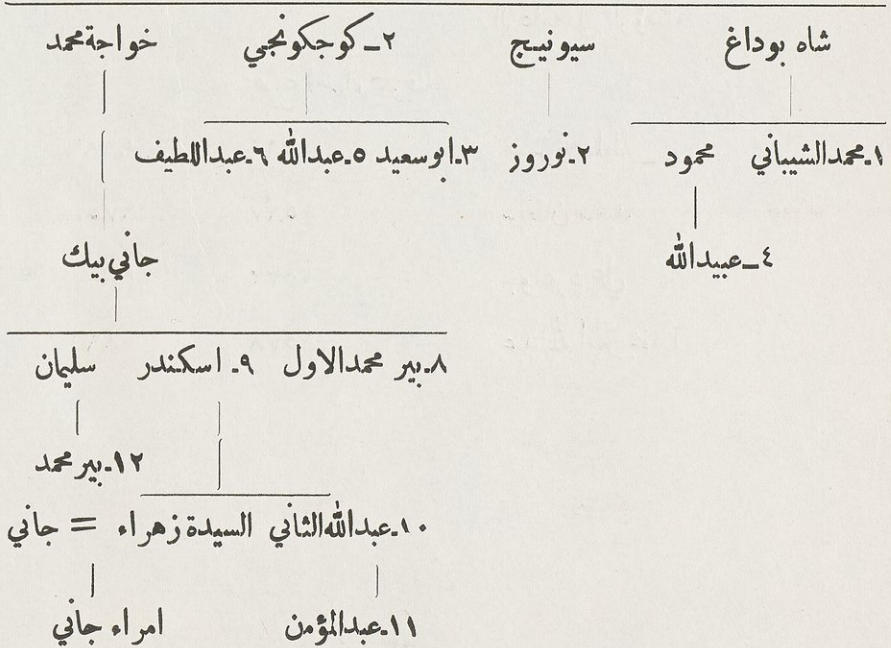 شاه بوداغ سيونيج ٢ـ كوجكونجي خواجة محمد
١ـ محمد الشيباني محمود ٢ـ نوروز ٣ـ ابو سعيد ٥ـ عبدالله ٦ـ عبداللطيف
٤ـ عبيدالله جاني بيك
٨ـ بير محمد الاول ٩ـ اسكندر سليمان
١٢ـ بير محمد
١٠ـ عبدالله الثاني السيدة زهراء = جاني
١١ـ عبدالمؤمن امراء جاني